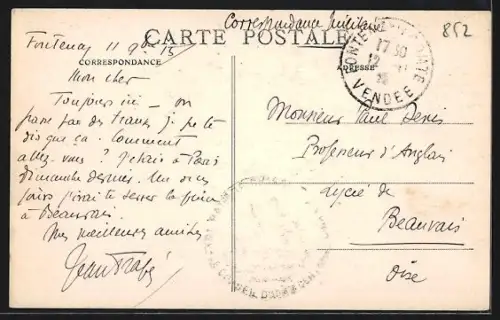 Correspondance Militaire
852
CARTE POSTALE
Fontenay 11 9bre 15
CORRESPONDANCE
ADRESSE
FONTENAY-LE-COMTE
17 30
12
VENDÉE
Mon cher
Toujours ici — on
passe par des transes, je ne te
dis que ça. Comment
allez-vous ? J'étais à Paris
dimanche dernier. Un de ces
jours j'irai te serrer la main
à Beauvais.
Mes meilleures amitiés
Jean
Monsieur Paul Denis
Professeur d'Anglais
Lycée de
Beauvais
Oise